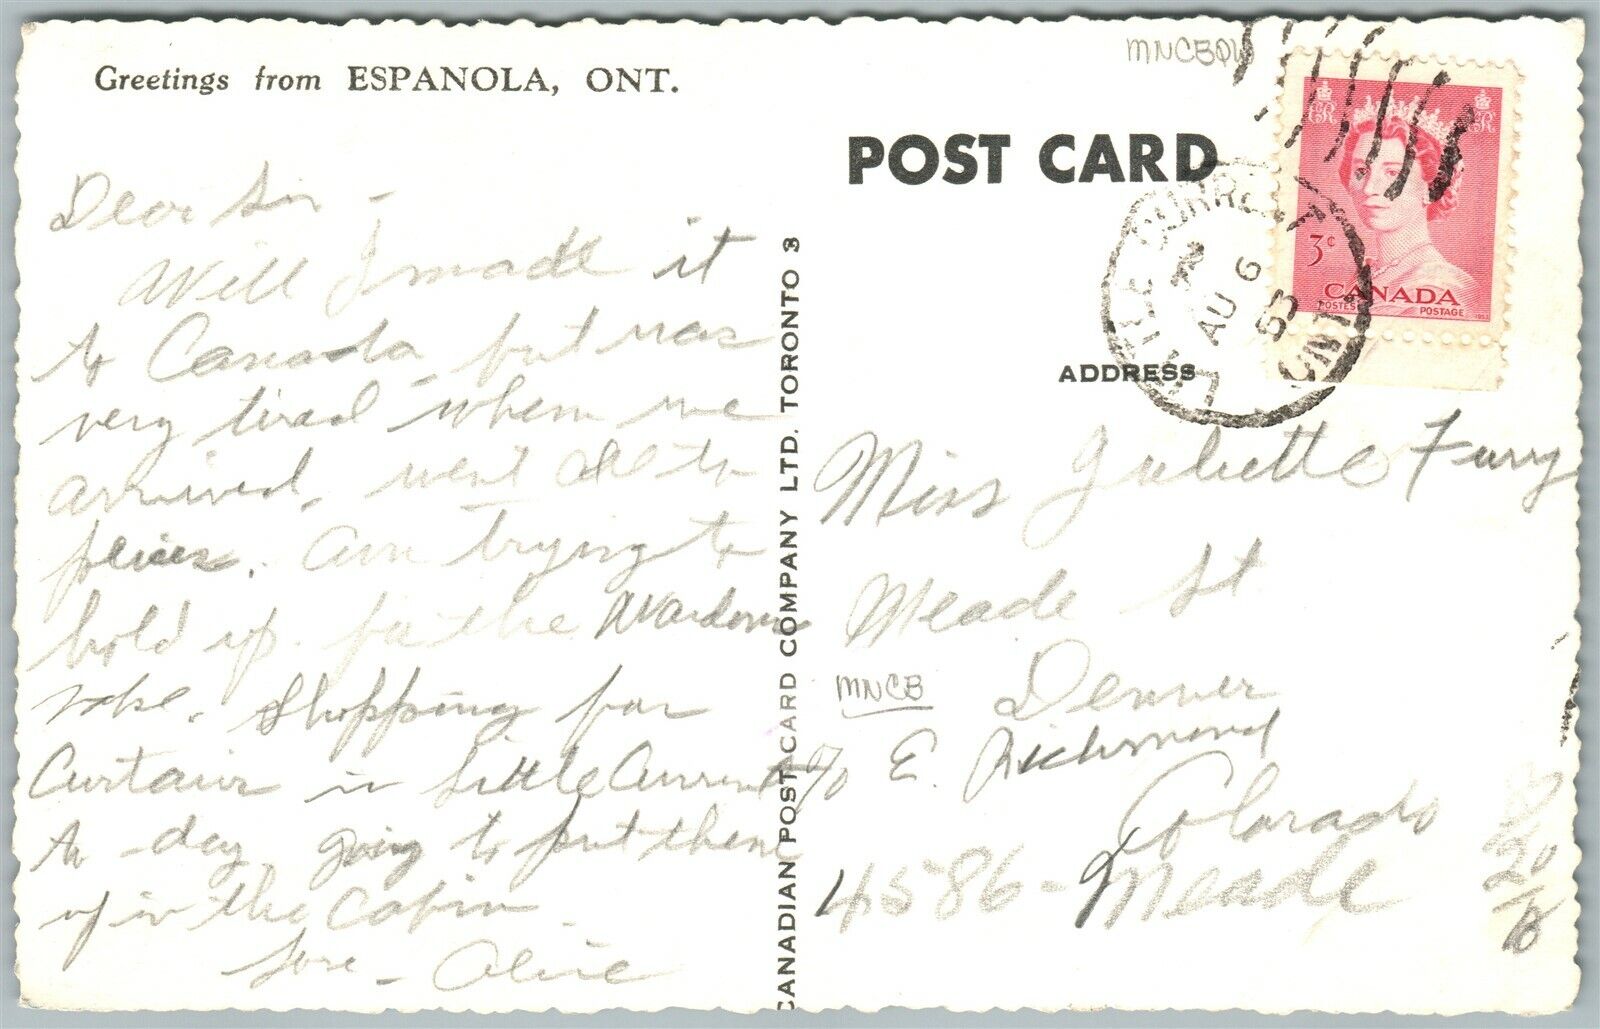 MNCBQW
Greetings from ESPANOLA, ONT.
POST CARD
3¢
CANADA
POSTES POSTAGE
1953
LITTLE CURRENT
AU 6
55
ONT.
ADDRESS
Dear
Will I made it
to Canada but was
very tired when we
arrived, went all to
. Am trying to
hold up for the
sake. Shopping for
Curtains in Little Current
to-day, going to put them
up in the Cabin
Love - Olive
CANADIAN POST CARD COMPANY LTD. TORONTO 3
Miss Juliette Furry
Meade St.
MNCB
Denver
c/o E. Richmond
Colorado
4586 - Meade